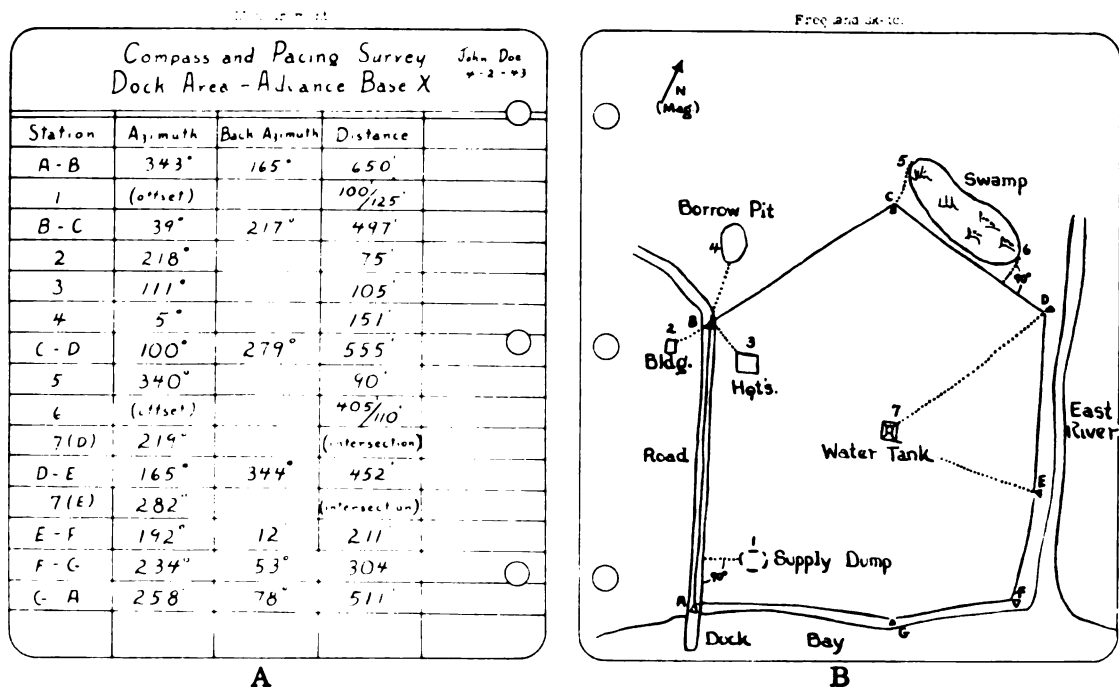 Compass and Pacing Survey
Dock Area - Advance Base X
John Doe
4-2-43
Station Azimuth Back Azimuth Distance
A-B 343° 165° 650'
1 (offset) 100'/125'
B-C 39° 217° 497'
2 218° 75'
3 111° 105'
4 5° 151'
C-D 100° 279° 555'
5 340° 90'
6 (offset) 405'/110'
7(D) 219° (intersection)
D-E 165° 344° 452'
7(E) 282° (intersection)
E-F 192° 12° 211'
F-G 234° 53° 304
G-A 258 78° 511'
A
N
(Mag)
5
Swamp
C
Borrow Pit
4
6
90°
D
B
2
3
Bldg.
Hqt's.
7
East
River
Road
Water Tank
E
1
Supply Dump
90°
A
F
G
Dock
Bay
B